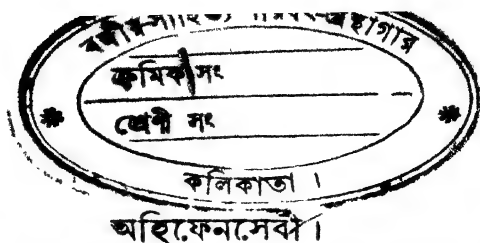 বঙ্গীয়-সাহিত্য পরিষৎ গ্রন্থাগার
ক্রমিক সং
শ্রেণী সং
কলিকাতা ।
অহিফেনসেবী ।